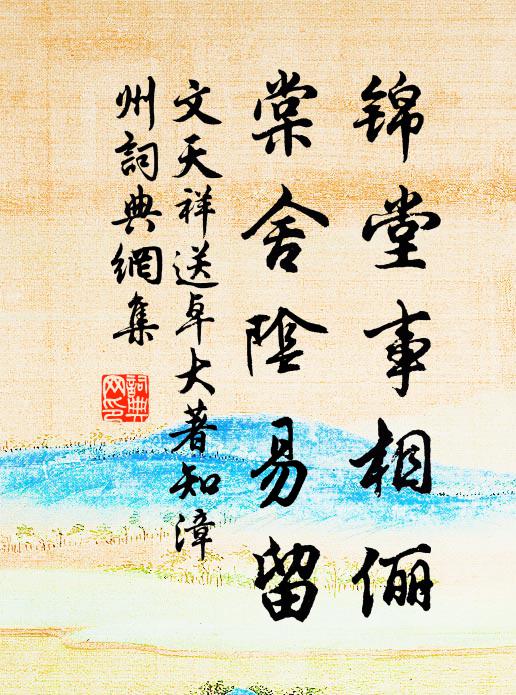 锦堂事相俪
棠舍陰易留
文天祥送卓大著知漳
州詞典網集
詞典
网印